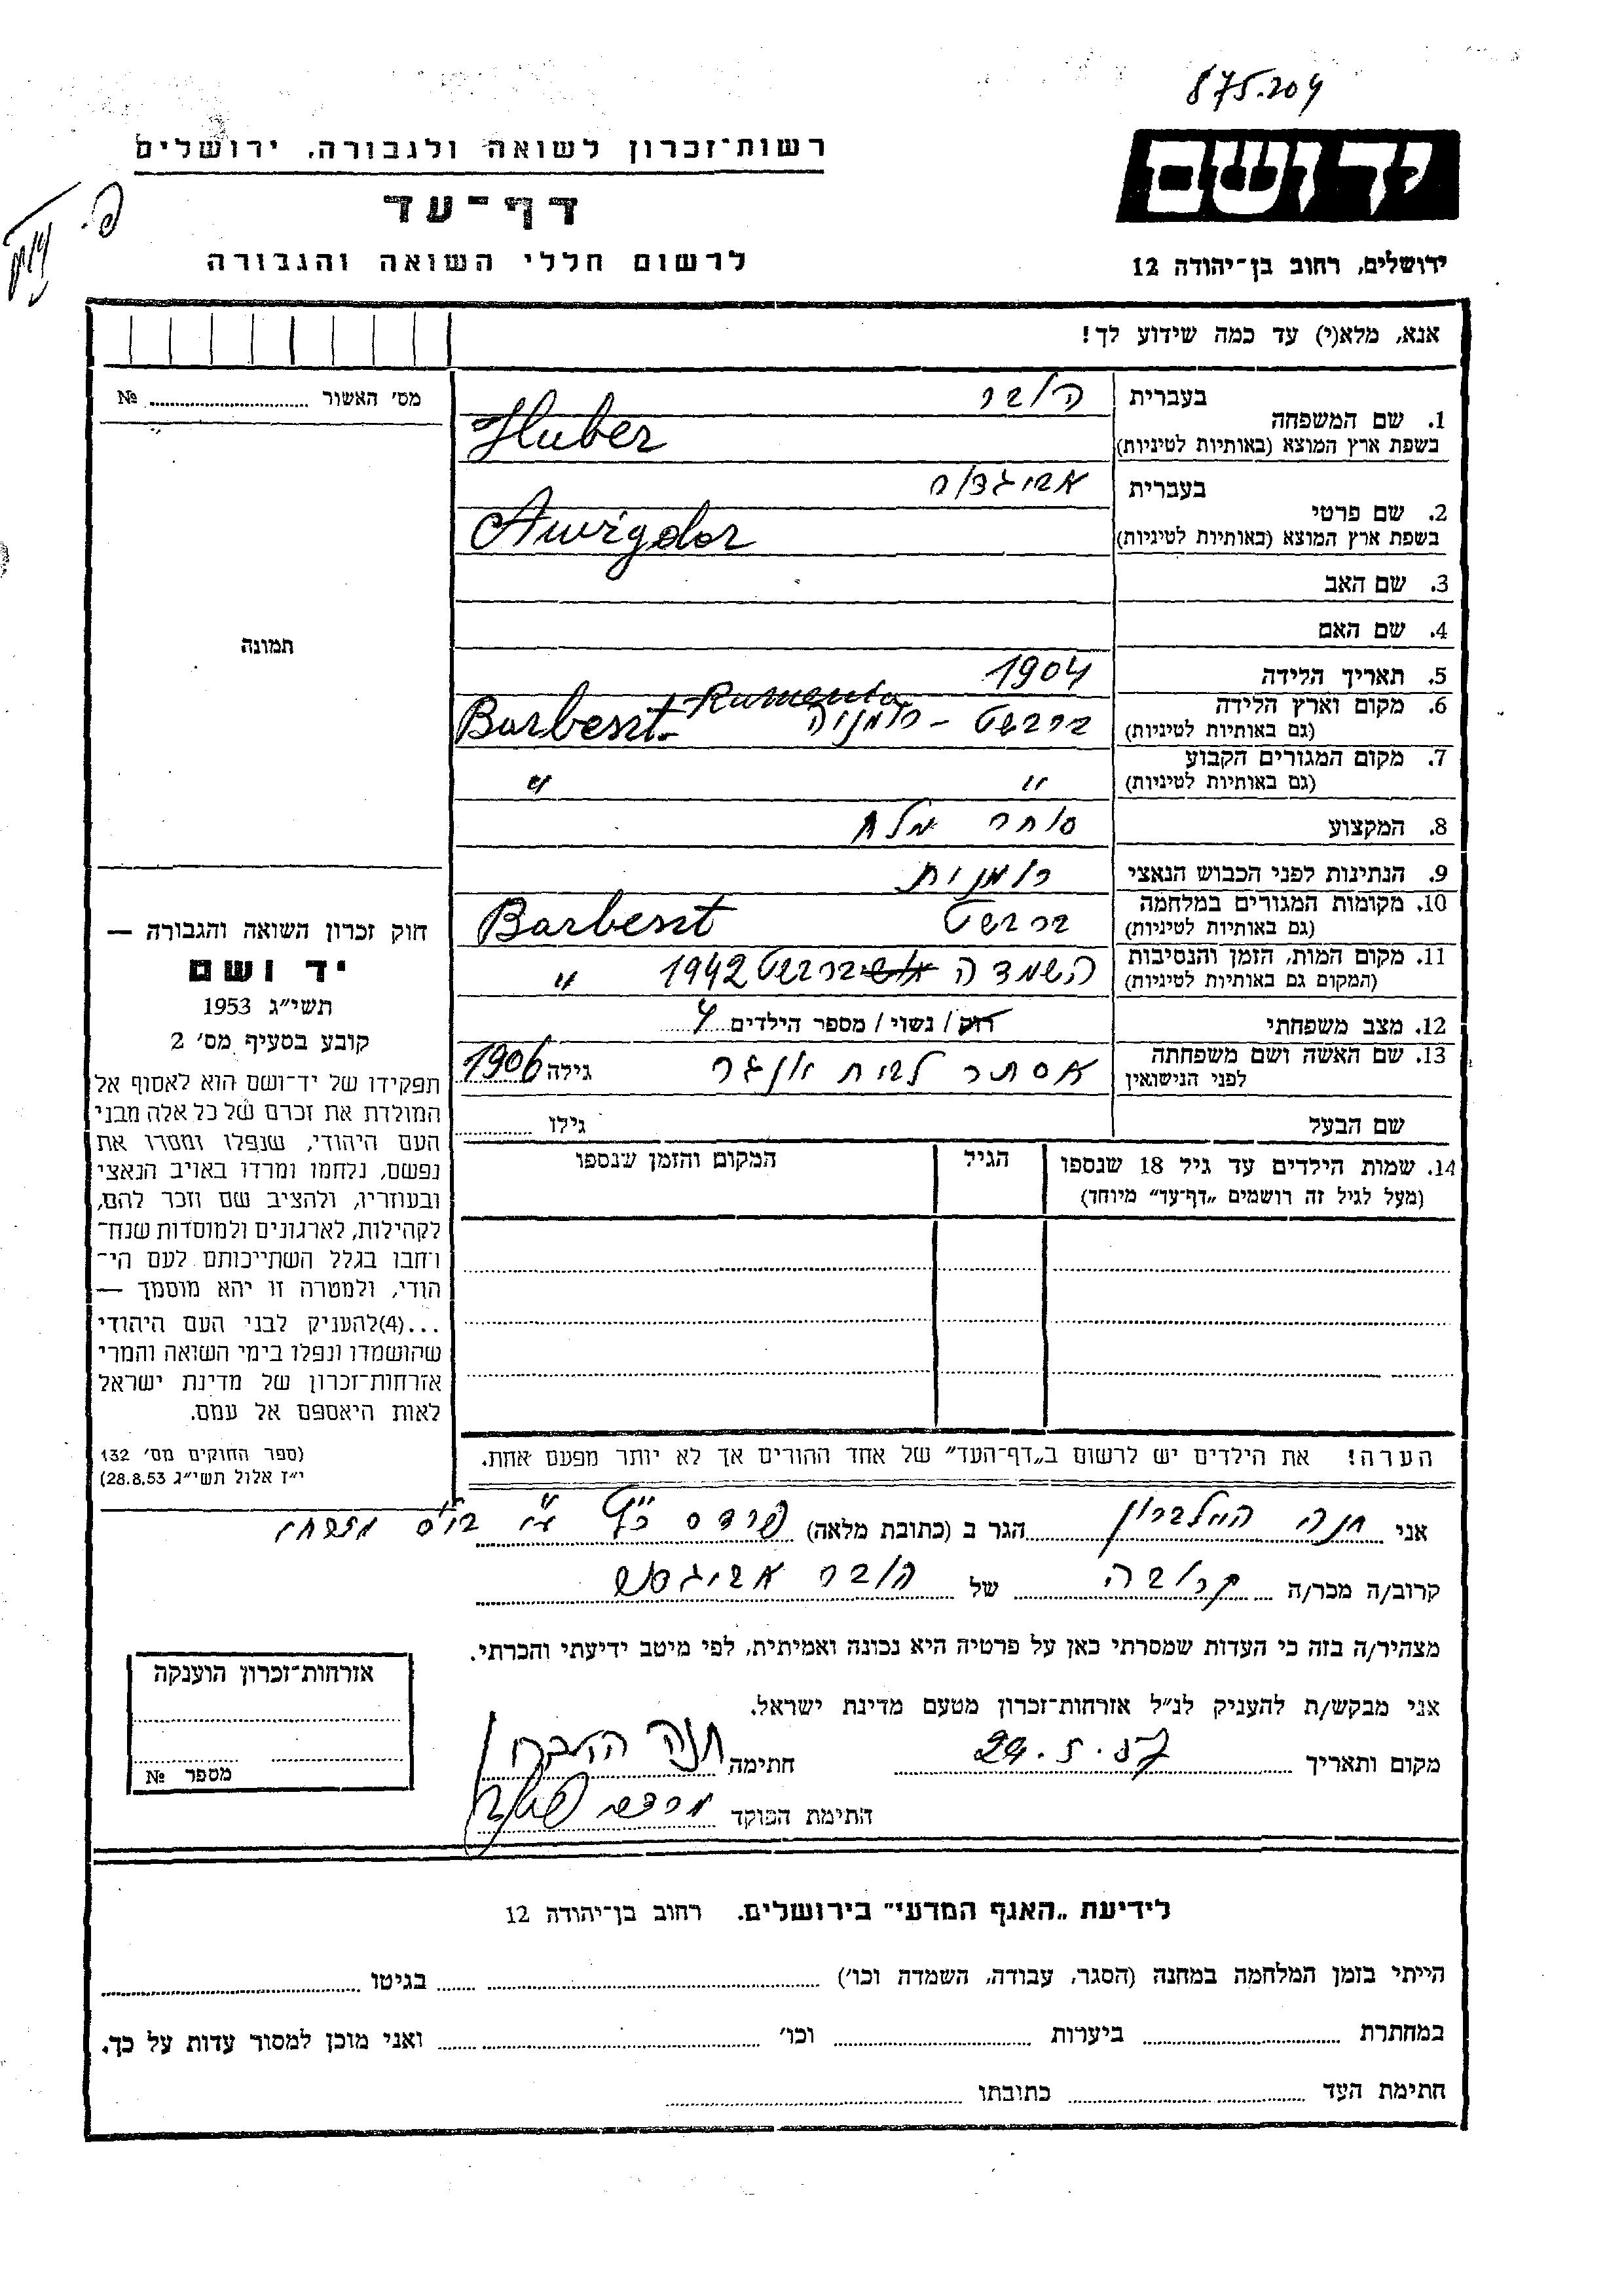 875.204
ידושם
רשות־זכרון לשואה ולגבורה, ירושלים
דף־עד
לרשום חללי השואה והגבורה
ירושלים, רחוב בן־יהודה 12
אנא, מלא(י) עד כמה שידוע לך!
מס׳ האשור № 
1. שם המשפחה
בעברית הובר
בשפת ארץ המוצא (באותיות לטיניות) Huber
2. שם פרטי
בעברית אביגדור
בשפת ארץ המוצא (באותיות לטיניות) Awigdor
3. שם האב
4. שם האם
תמונה
5. תאריך הלידה 1904
6. מקום וארץ הלידה ברבשט – רומניה
(גם באותיות לטיניות) Barbeszt - Rumenia
7. מקום המגורים הקבוע
(גם באותיות לטיניות) " "
8. המקצוע סוחר מלח
9. הנתינות לפני הכבוש הנאצי רומנית
10. מקומות המגורים במלחמה ברבשט
(גם באותיות לטיניות) Barbeszt
11. מקום המות, הזמן והנסיבות השמדה ברבשט 1942
(המקום גם באותיות לטיניות) "
12. מצב משפחתי רוק / נשוי / מספר הילדים 4
13. שם האשה ושם משפחתה אסתר לבית אונגר גילה 1906
לפני הנישואין
שם הבעל גילו
14. שמות הילדים עד גיל 18 שנספו הגיל המקום והזמן שנספו
(מעל לגיל זה רושמים „דף־עד” מיוחד)
הערה! את הילדים יש לרשום ב„דף־העד” של אחד ההורים אך לא יותר מפעם אחת.
חוק זכרון השואה והגבורה —
יד ושם
תשי״ג 1953
קובע בסעיף מס׳ 2
תפקידו של יד־ושם הוא לאסוף אל
המולדת את זכרם של כל אלה מבני
העם היהודי, שנפלו ומסרו את
נפשם, נלחמו ומרדו באויב הנאצי
ובעוזריו, ולהציב שם וזכר להם,
לקהילות, לארגונים ולמוסדות שנח־
רחבו בגלל השתייכותם לעם הי־
הודי, ולמטרה זו יהא מוסמך —
...(4)להעניק לבני העם היהודי
שהושמדו ונפלו בימי השואה והמרי
אזרחות־זכרון של מדינת ישראל
לאות היאספם אל עמם.
(ספר החוקים מס׳ 132
י״ז אלול תשי״ג 28.8.53)
אני חנה היילברון הגר ב (כתובת מלאה) פרדס כץ
קרוב/ה מכר/ה קרובה של הובר אביגדור
מצהיר/ה בזה כי העדות שמסרתי כאן על פרטיה היא נכונה ואמיתית, לפי מיטב ידיעתי והכרתי.
אני מבקש/ת להעניק לנ״ל אזרחות־זכרון מטעם מדינת ישראל.
מקום ותאריך 29.5.57 חתימה חנה היילברון
חתימת הפוקד
אזרחות־זכרון הוענקה
מספר №
לידיעת „האגף המדעי” בירושלים. רחוב בן־יהודה 12
הייתי בזמן המלחמה במחנה (הסגר, עבודה, השמדה וכו׳) בגיטו
במחתרת ביערות וכו׳ ואני מוכן למסור עדות על כך.
חתימת העד כתובתו